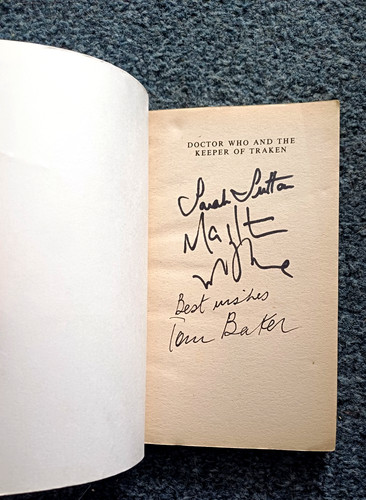 DOCTOR WHO AND THE
KEEPER OF TRAKEN
Sarah Sutton
Best wishes
Tom Baker